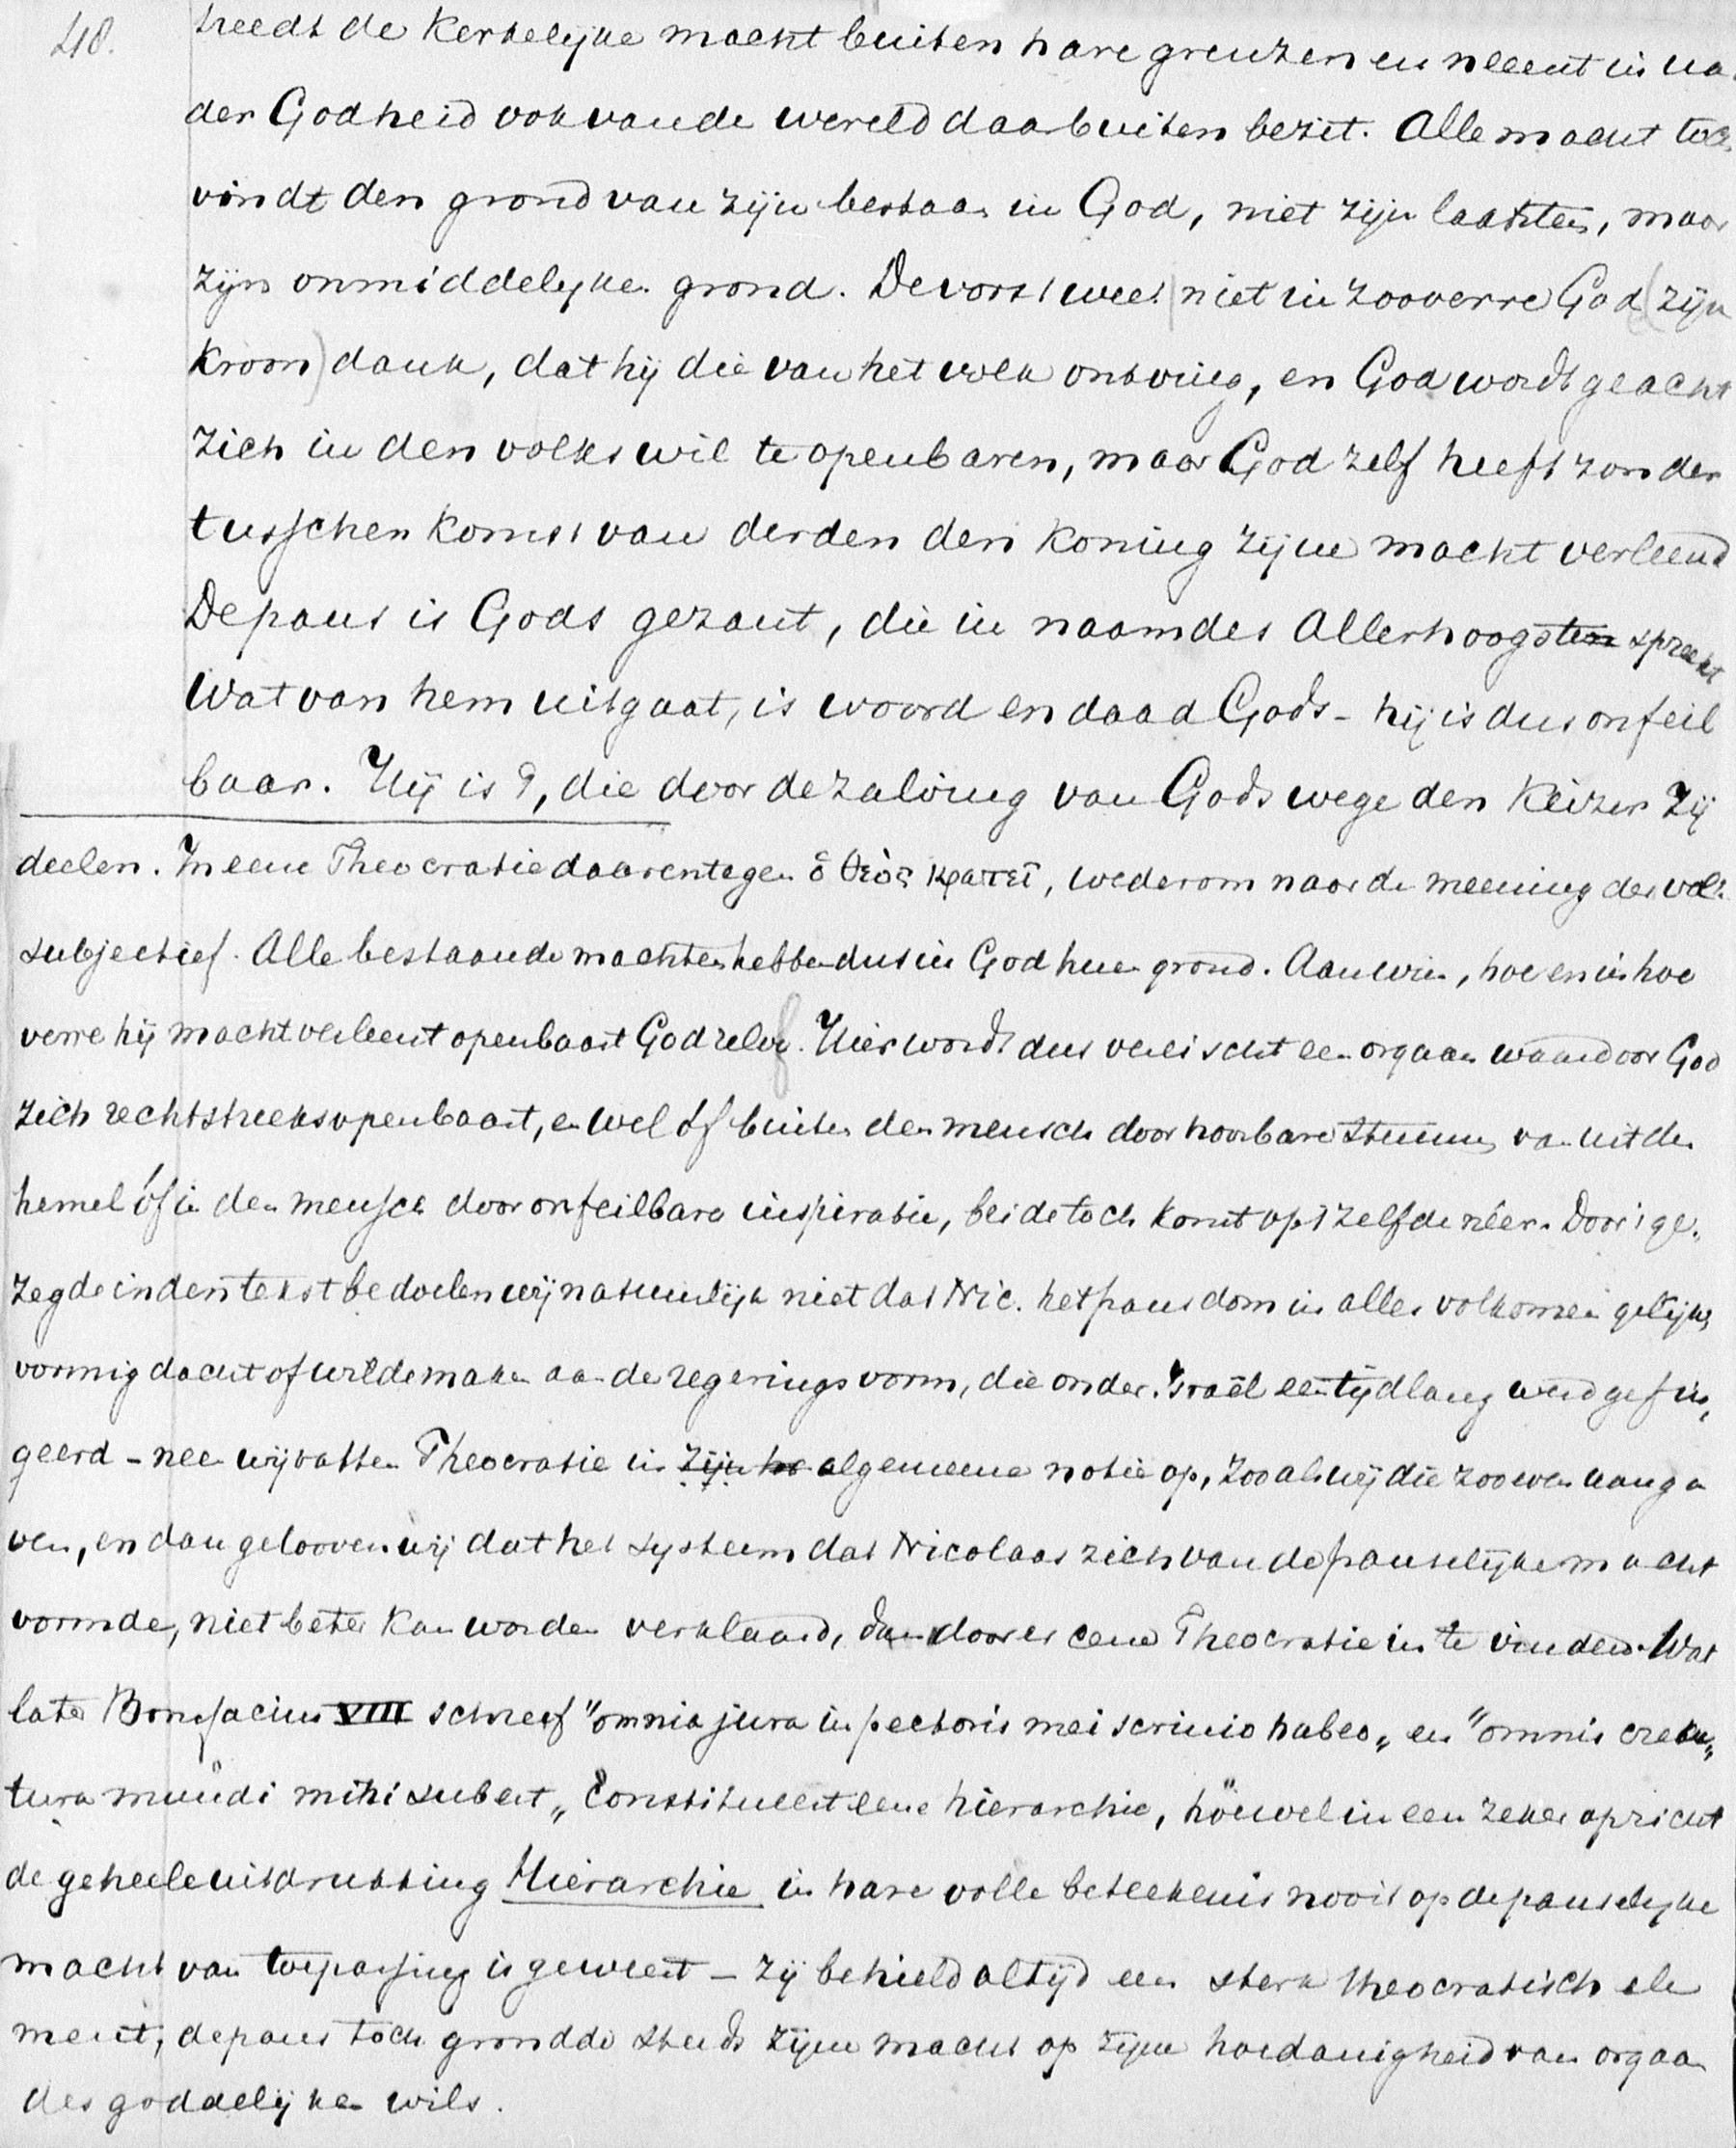 48.
treedt de Kerkelijke macht buiten hare grenzen en neemt in na
der Godheid ook van de wereld daarbuiten bezit. Alle macht toch
vindt den grond van zijn bestaan in God, niet zijn laatsten, maar
zijn onmiddelyken grond. De vorst weet niet in zooverre God (zijn
Kroon) dank, dat hij die van het volk ontving, en God wordt geacht
zich in den volkswil te openbaren, maar God zelf heeft zonder
tusschenkomst van derden den Koning zijne macht verleend
De paus is Gods gezant, die in naam des Allerhoogsten spreekt
Wat van hem uitgaat, is woord en daad Gods - hij is dus onfeil
baar. Hij is 't, die door de zalving van Gods wege den Keizer zij
deelen. In eene Theocratie daarentegen ὁ θεὸς κρατεῖ, wederom naar de meening des volks
subjectief. Alle bestaande machten hebben dus in God hun grond. Aan wien, hoe en in hoe
verre hij macht verleent openbaart God zelf. Hier wordt dus vereischt een orgaan waardoor God
zich rechtstreeks openbaart, en wel óf buiten den mensch door hoorbare stemmen van uit den
hemel óf in den mensch door onfeilbare inspiratie, beide toch komt op 't zelfde neer. Door 't ge-
zegde in den tekst bedoelen wij natuurlijk niet dat Nic. het pausdom in alles volkomen gelijk,
vormig dacht of wilde maken aan de regeringsvorm, die onder Israël een tijdlang werd gefin,
geerd - neen wij vatten Theocratie in zijn algemeene notie op, zooals wij die zooeven aanga
ven, en dan gelooven wij dat het systeem dat Nicolaas zich van de pauselijke macht
vormde, niet beter kan worden verklaard, dan door er eene Theocratie in te vinden. Wat
later Bonifacius VIII schreef "omnia jura in pectoris mei scrinio habeo„ en "omnis crea„
tura mundi mihi subest„ Constitueert eene hierarchie, hoewel in een zeker opzicht
de geheele uitdrukking Hierarchie in hare volle beteekenis nooit op de pauselyke
macht van toepassing is geweest - zij behield altijd een sterk theocratisch ele
ment, de paus toch grondde steeds zijne macht op zijne hoedanigheid van orgaan
des goddelijken wils.